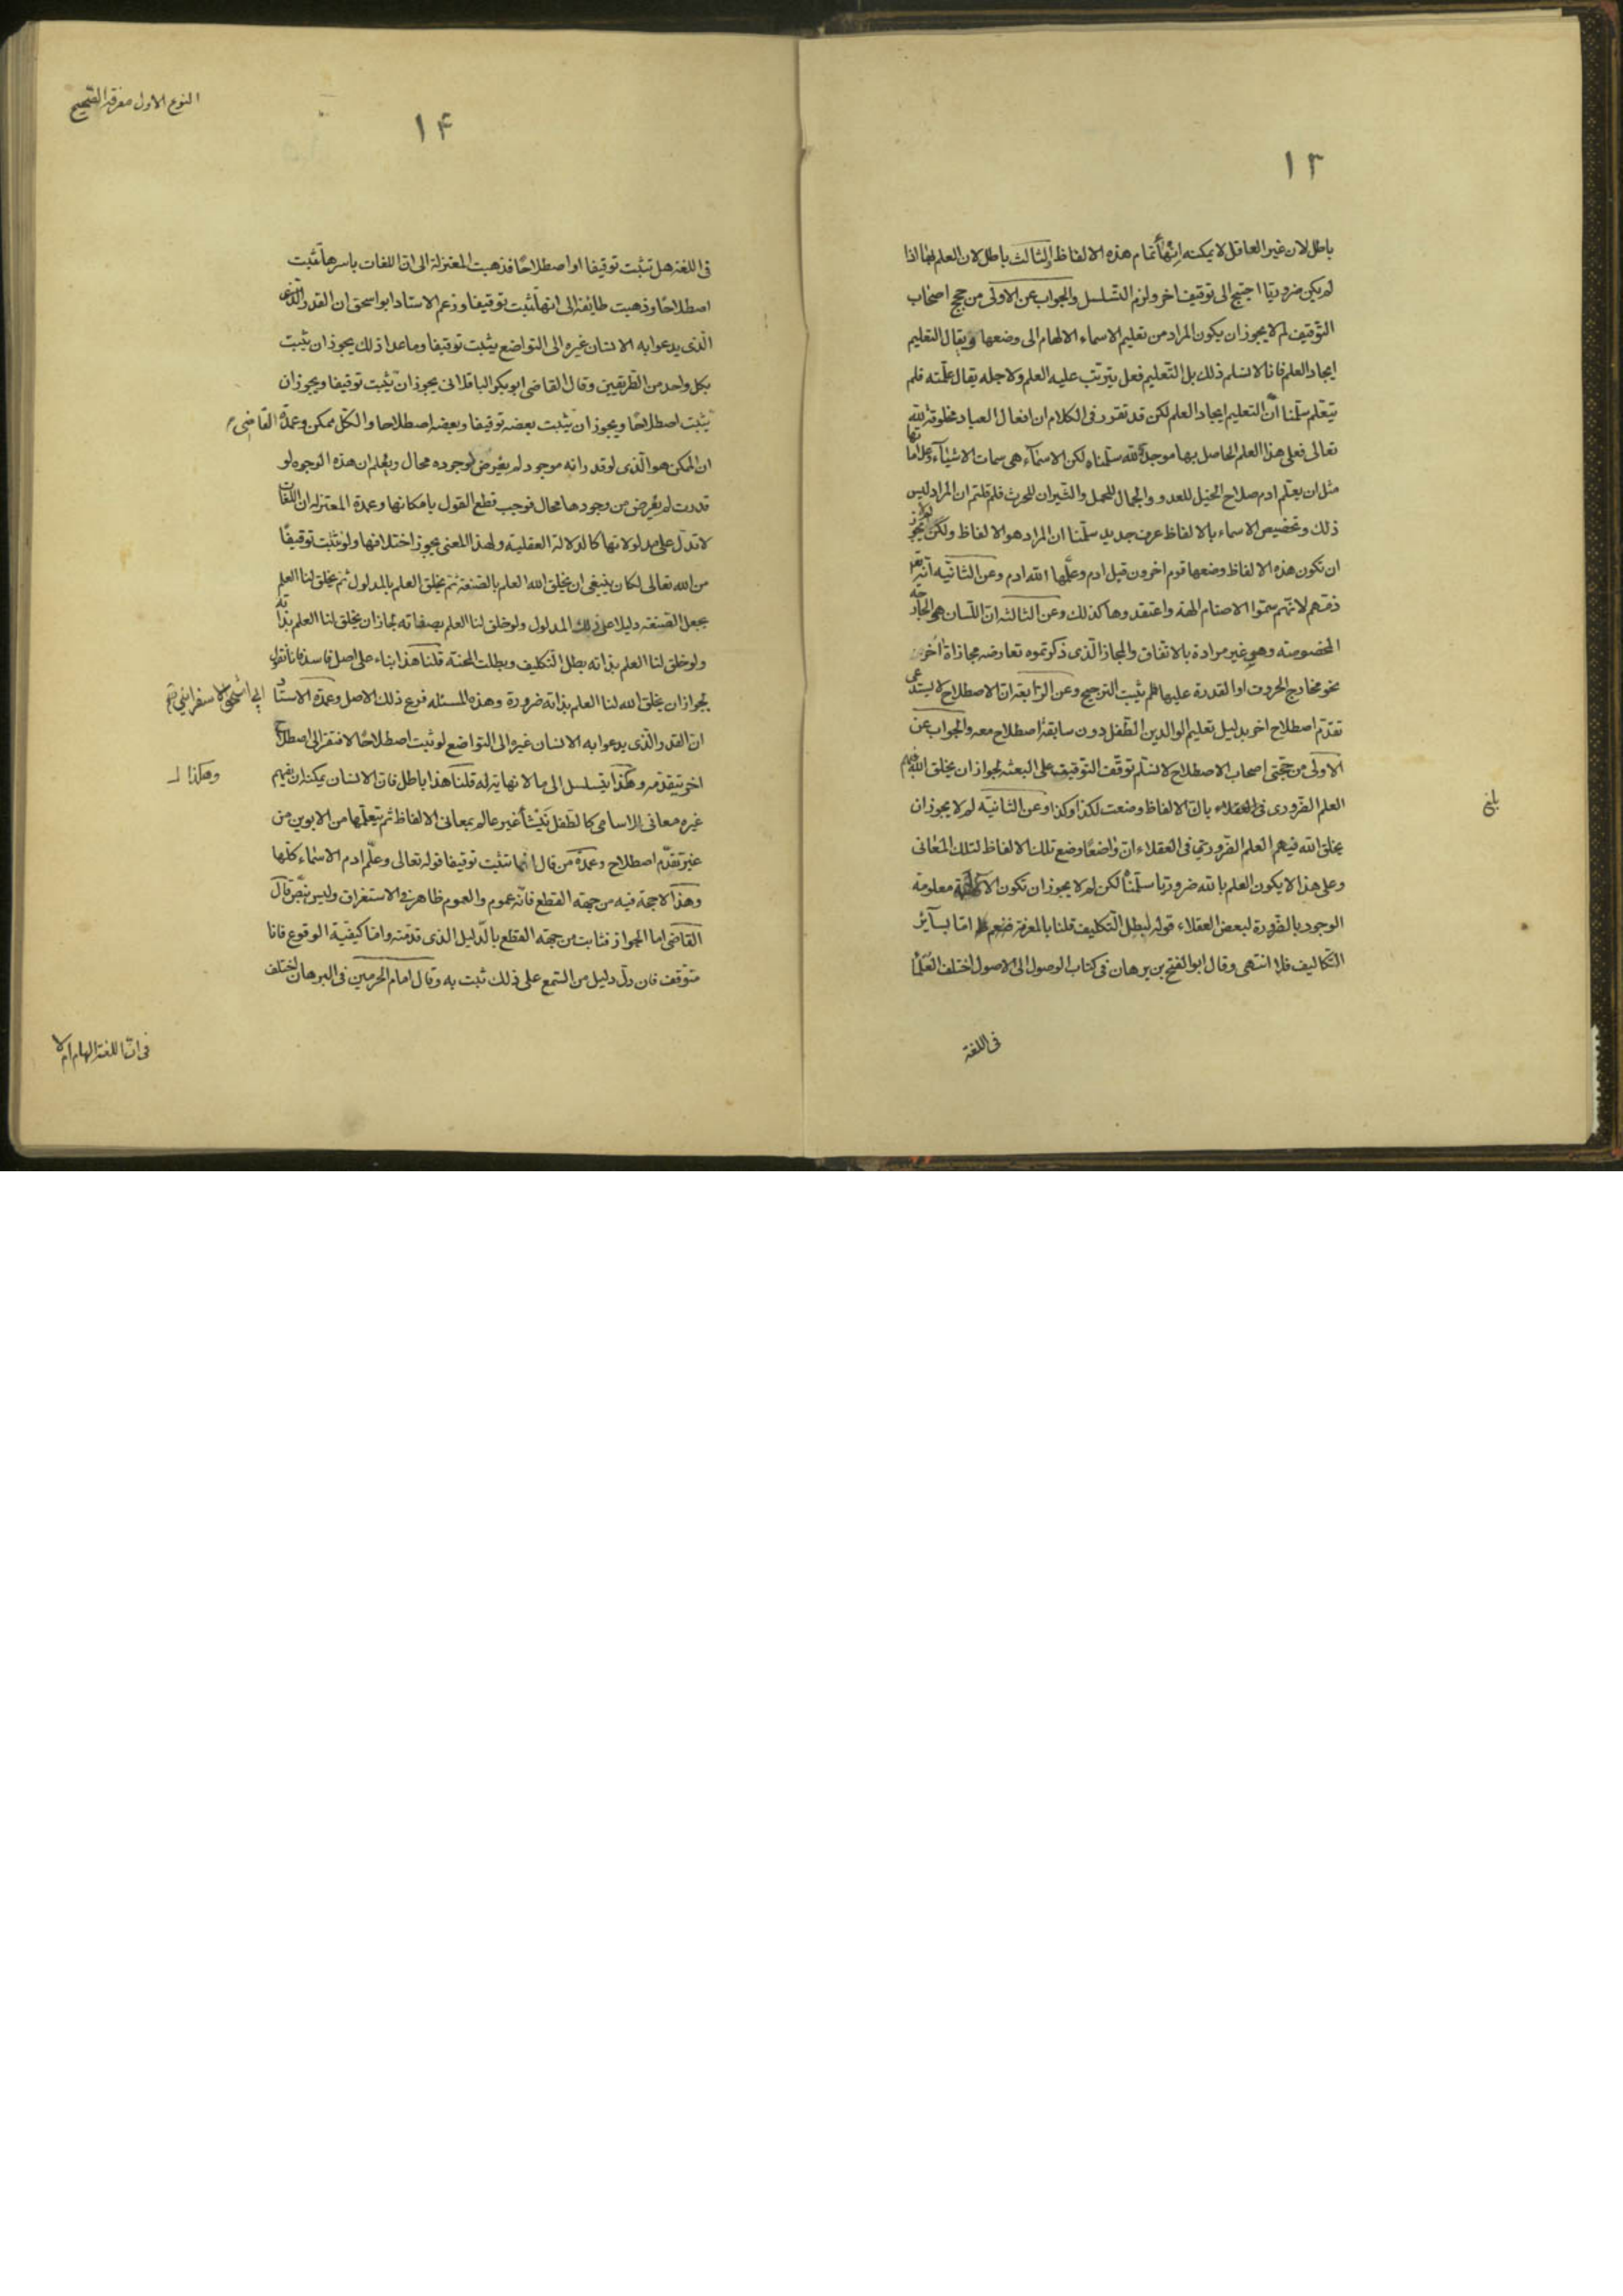 ١٣
باطل لان غير العاقل لا يمكنه انهاء تمام هذه الالفاظ والثالث باطل لان العلم بها اذا
لم يكن ضروريّا احتيج الى توقيف اخر ولزم التسلسل والجواب عن الاولى من حجج اصحاب
التوقيف لم لا يجوز ان يكون المراد من تعليم الاسماء الالهام الى وضعها ولا يقال التعليم
ايجاد العلم فانا لا نسلم ذلك بل التعليم فعل يترتب عليه العلم ولاجله يقال علّمته فلم
يتعلم سلّمنا أنّ التعليم ايجاد العلم لكن قد تقرر فى الكلام ان افعال العباد مخلوقة لله
تعالى فعلى هذا العلم الحاصل بها موجده الله سلّمناه لكن الاسمآء هى سمات الاشيآء وعلاماتها
مثل ان يعلّم ادم صلاح الخيل للعدو والجمال للحمل والثيران للحرث فلم قلتم ان المراد ليس
ذلك وتخصيص الاسماء بالالفاظ عرف جديد سلّمنا ان المراد هو الالفاظ ولكن لم لا يجوز
ان تكون هذه الالفاظ وضعها قوم اخرون قبل ادم وعلّمها الله ادم وعن الثانية أنه تعالى
ذمّهم لانّهم سمّوا الاصنام الهة واعتقدوها كذلك وعن الثالثة انّ اللّسان هو الجارحة
المخصوصة وهى غير مرادة بالاتفاق والمجاز الّذى ذكرتموه تعارضه مجازاة أخرى
نحو مخارج الحروف او القدرة عليها فلم يثبت الترجيح وعن الرّابعة ان الاصطلاح لا يستدعى
تقدّم اصطلاح اخر بدليل تعليم الوالدين الطّفل دون سابقة اصطلاح معه والجواب عن
الاولى من حجّتى اصحاب الاصطلاح لا نسلّم توقّف التوقيف على البعثة لجواز ان يخلق الله فيهم
العلم الضّرورى فى العقلاء بانّ الالفاظ وضعت لكذا وكذا وعن الثانيّه لم لا يجوز ان
يخلق الله فيهم العلم الضّرورىّ فى العقلاء ان واضعًا وضع تلك الالفاظ لتلك المعانى
وعلى هذا لا يكون العلم بالله ضروريا سلّمناه لكن لم لا يجوز ان تكون معلومة
الوجود بالضّرورة لبعض العقلاء قوله لبطل التّكليف قلنا بالمعرفة فنعم امّا بسآئر
التّكاليف فلا انتهى وقال ابو الفتح بن برهان فى كتاب الوصول الى الاصول اختلف العُلمآء
فى اللغة
النوع الاول معرفة الصّحيح
١۴
فى اللغة هل تثبت توقيفا او اصطلاحًا فذهبت المعتزلة الى انّ اللغات باسرها تثبت
اصطلاحًا وذهبت طائفة الى انها تثبت توقيفا وزعم الاستاد ابو اسحق ان القدر الّذى
الّذى يدعو به الانسان غيره الى التواضع يثبت توقيفا وما عدا ذلك يجوز ان يثبت
بكل واحد من الطّريقين وقال القاضى ابو بكر الباقلانى يجوز ان يثبت توقيفا ويجوز ان
يثبت اصطلاحًا ويجوز ان يثبت بعضه توقيفا وبعضه اصطلاحا والكلّ ممكن وعمدة القاضى
ان الممكن هو الّذى لو قدر انه موجود لم يعرض لوجوده محال ويعلم ان هذه الوجوه لو
قدرت لم يعرض من وجودها محال فوجب قطع القول بامكانها وعمدة المعتزلة ان اللّغات
لا تدل على مدلولاتها كالدلالة العقلية ولهذا المعنى يجوز اختلافها ولو تثبت توقيفًا
من الله تعالى لكان ينبغى ان يخلق الله العلم بالصّيغة ثم يخلق العلم بالمدلول ثم يخلق لنا العلم
بجعل الصّيغة دليلا على ذلك المدلول ولو خلق لنا العلم بصفاته لجاز ان يخلق لنا العلم بذاته
ولو خلق لنا العلم بذاته بطل التّكليف وبطلت المحنة قلنا هذا بناء على اصل فاسد فانا نقول
يجوز ان يخلق الله لنا العلم بذاته ضرورة وهذه المسئلة فرع ذلك الاصل وعمدة الاستاد
ابى اسحق الاسفراينى
انّ القدر الّذى يدعو به الانسان غيره الى التواضع لو ثبت اصطلاحًا لافتقر الى اصطلاح
اخر يتقدّمه وهكذا يتسلسل الى ما لا نهاية له قلنا هذا باطل فانّ الانسان يمكنه ان يفهم
وهكذا
غيره معانى الاسامى كالطّفل ينشأ غير عالم بمعانى الالفاظ ثم يتعلّمها من الابوين من
غير تقدّم اصطلاح وعمدة من قال انّها تثبت توقيفا قوله تعالى وعلّم ادم الاسماء كلّها
وهذا لا حجة فيه من جهة القطع فانّه عموم والعموم ظاهر فى الاستغراق وليس بنصّ قال
القاضى اما الجواز فثابت من جهة القطع بالدّليل الذى قدّمته وامّا كيفيّة الوقوع فانا
متوّقف فان دلّ دليل من السّمع على ذلك ثبت به وقال امام الحرمين فى البرهان اختلف
فى انّ اللغة الهام ام لا